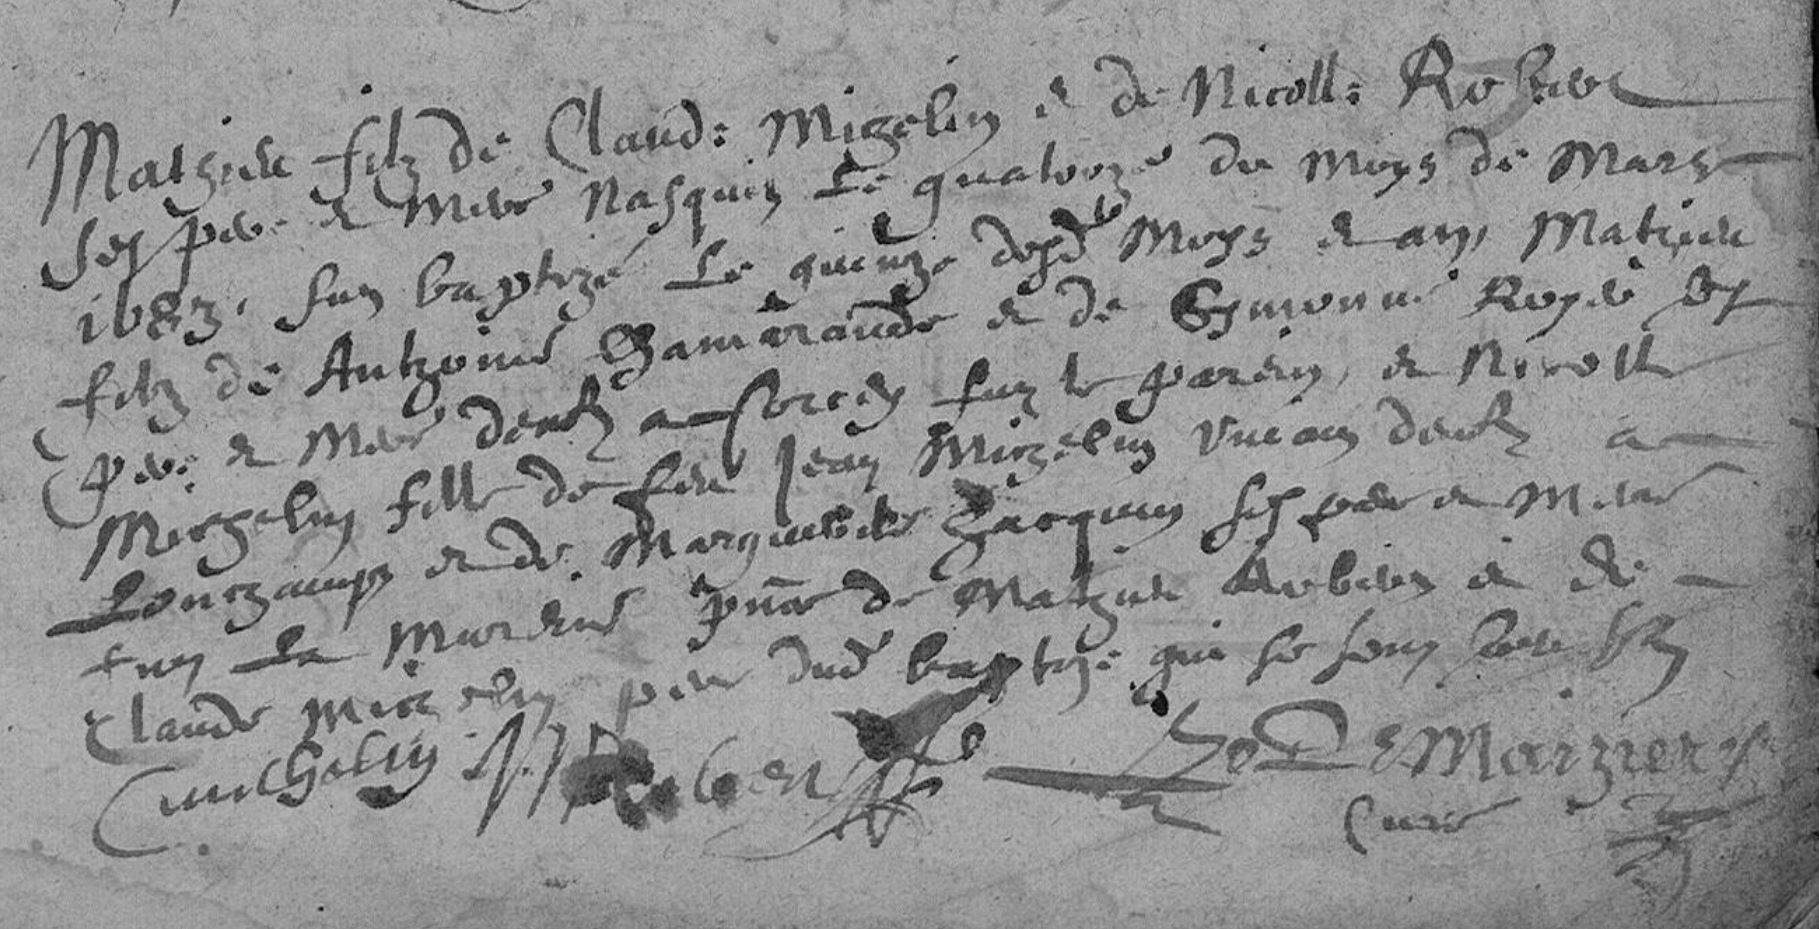 Mathieu filz de Claude Michelin et de Nicolle Robert
ses pere et mere nasquit le quatorze du moys de Mars
fut baptizé le quinze desd moys et an, Mathieu
filz de Anthoine et de Symonne Royer ses
pere et mere dent a Sorcey fut le parein, et Nicolle
Michelin fille de feu Jean Michelin vivant dent a
Lonchamps et de Marguerite Jacquin ses pere et mere
fut la mareine pnce de Mathieu Robert et de
Claude Michelin pere dud baptizé qui se sont soubsz
C michelin M Robert De Maizieres
Curé